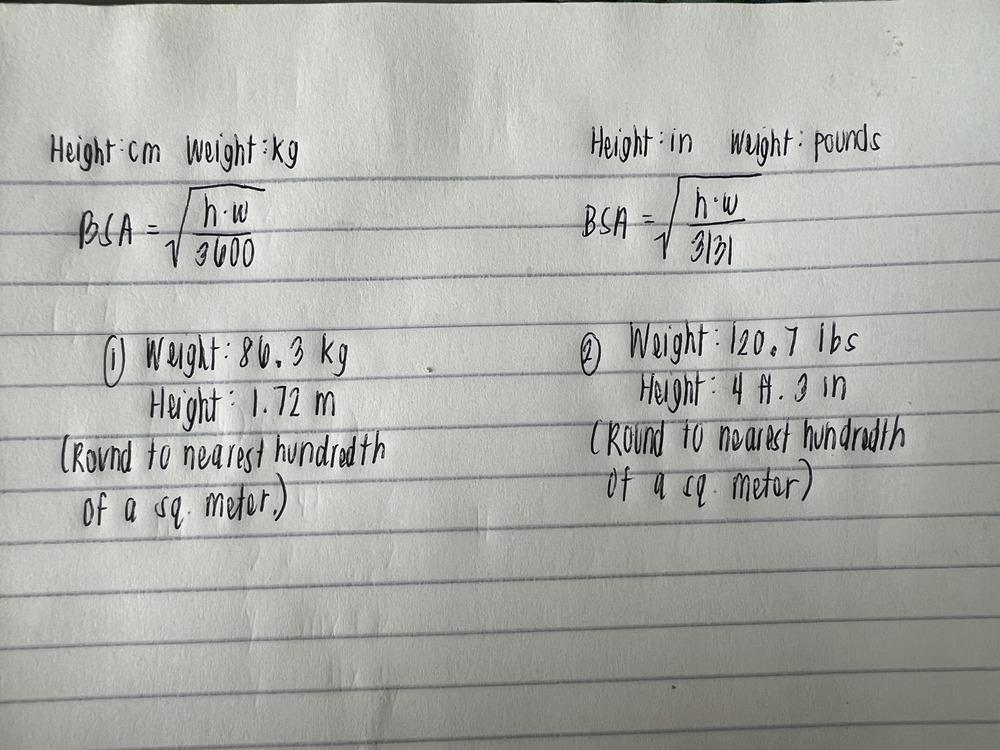 Height: cm Weight: kg
BSA = √(h·w / 3600)
① Weight: 86.3 kg
Height: 1.72 m
(Round to nearest hundredth
of a sq. meter.)
Height: in Weight: pounds
BSA = √(h·w / 3131)
② Weight: 120.7 lbs
Height: 4 ft. 3 in
(Round to nearest hundredth
of a sq. meter)